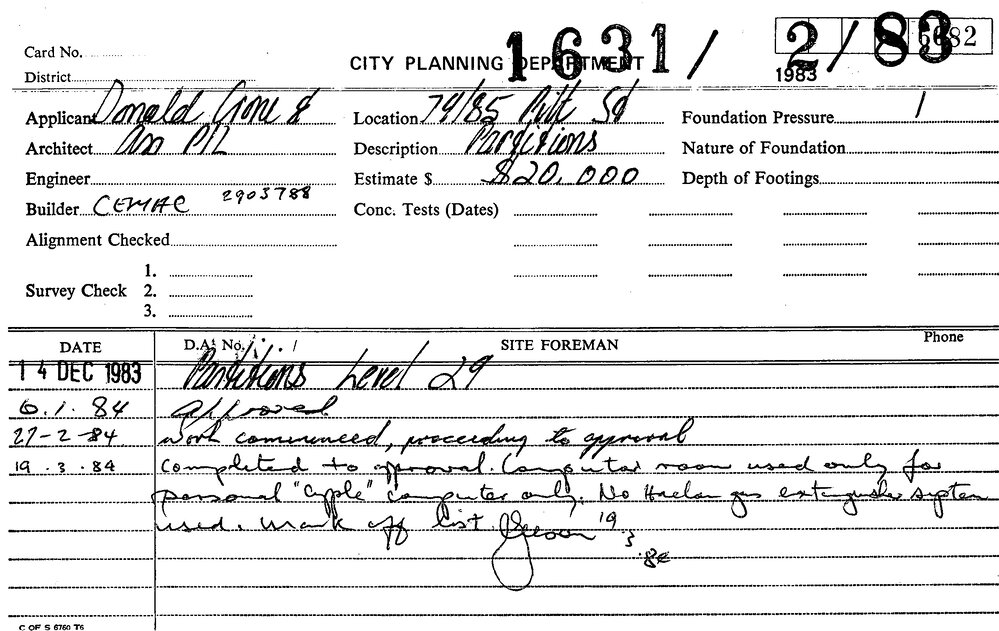 1631/ 2/83
5682
1983
Card No.
CITY PLANNING DEPARTMENT
District
Applicant Donald Crone &
Location 79/85 Pitt St
Foundation Pressure
Architect Ass P/L
Description Partitions
Nature of Foundation
Engineer
Estimate $ $20,000
Depth of Footings
Builder CEMAC 2903788
Conc. Tests (Dates)
Alignment Checked
1.
Survey Check 2.
3.
DATE D.A. No. SITE FOREMAN Phone
14 DEC 1983 Partitions Level 29
6.1.84 approved
27-2-84 work commenced, proceeding to approval
19.3.84 Completed to approval. Computer room used only for
personal "apple" computer only. No Haelon gas extinguisher system
used. Mark off list. 19
3
.84
C OF S 6760 T6